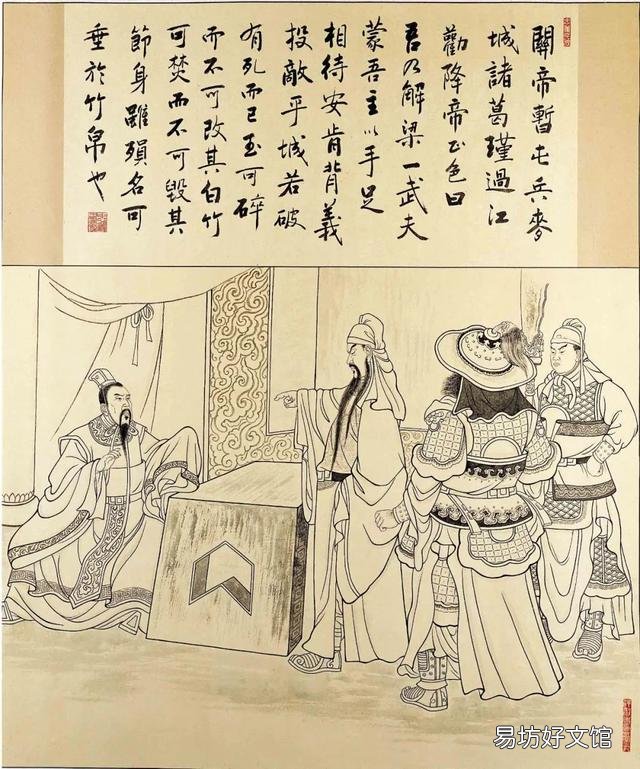 關帝暫屯兵麥
城諸葛瑾過江
勸降帝正色曰
吾乃解梁一武夫
蒙吾主以手足
相待安肯背義
投敵乎城若破
有死而已玉可碎
而不可改其白竹
可焚而不可毀其
節身雖殞名可
垂於竹帛也
易坊好文馆